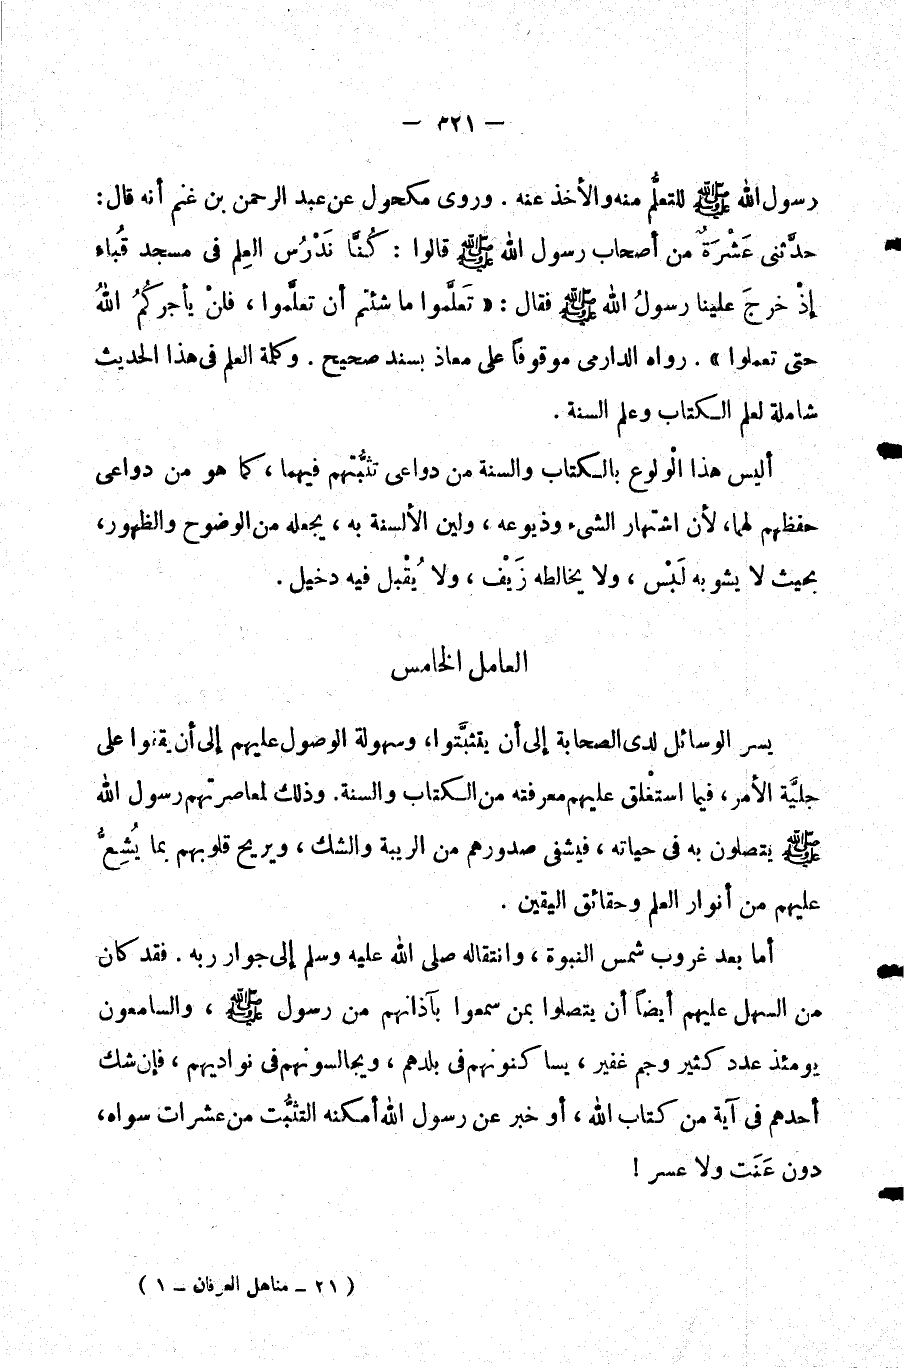 — ٣٢١ —
رسول الله ﷺ للتعلُّم منه والأخذ عنه . وروى مكحول عن عبد الرحمن بن غنم أنه قال :
حدَّثنى عَشْرَةٌ من أصحاب رسول الله ﷺ قالوا : كُنَّا نَدْرُس العِلم فى مسجد قُباء
إذْ خرجَ علينا رسولُ الله ﷺ فقال : « تَعلَّموا ما شئتم أن تعلَّموا ، فلنْ يأجركُمُ اللهُ
حتى تعملوا » . رواه الدارمى موقوفاً على معاذ بسند صحيح . وكلمة العلم فى هذا الحديث
شاملة لعلم الكتاب وعلم السنة .
أليس هذا الْولوع بالكتاب والسنة من دواعى تثبُّتهم فيهما ، كما هو من دواعى
حفظهم لهما، لأن اشتهار الشىء وذيوعه ، ولين الألسنة به ، يجعله من الوضوح والظهور،
بحيث لا يشوبه لَبْس ، ولا يخالطه زَيْف ، ولا يُقْبل فيه دخيل .
العامل الخامس
يسر الوسائل لدى الصحابة إلى أن يتثبَّتوا، وسهولة الوصول عليهم إلى أن يقفوا على
جليَّة الأمر، فيما استغْلق عليهم معرفته من الكتاب والسنة. وذلك لمعاصرتهم رسول الله
ﷺ يتصلون به فى حياته ، فيشفى صدورهم من الريبة والشك ، ويريح قلوبهم بما يُشِعُّ
عليهم من أنوار العلم وحقائق اليقين .
أما بعد غروب شمس النبوة ، وانتقاله صلى الله عليه وسلم إلى جوار ربه . فقد كان
من السهل عليهم أيضاً أن يتصلوا بمن سمعوا بآذانهم من رسول ﷺ ، والسامعون
يومئذ عدد كثير وجم غفير ، يساكنونهم فى بلدهم ، ويجالسونهم فى نواديهم ، فإن شك
أحدهم فى آية من كتاب الله ، أو خبر عن رسول الله أمكنه التثبُّت من عشرات سواه،
دون عَنَت ولا عسر !
( ٢١ – مناهل العرفان – ١ )